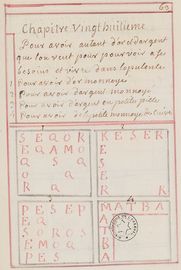 63
Chapitre Vingthuitieme
Pour avoir autant d'or et d'argent
que lon veut pour pourvoir a ses
besoins et vivre dans l'opulente
1 Pour avoir d'or monnoyé
2 Pour avoir d'argent monnoyé
3 Pour avoir d'argent en petite piece
4 Pour avoir de la petite monnoye de Cuivre
1
2
SEQOR
EQAMO
Q
O
R
KESER
E
S
E
R
3
4
PESEP
EQ
SOROS
EMOQ
PES
MATBA
A
B
A